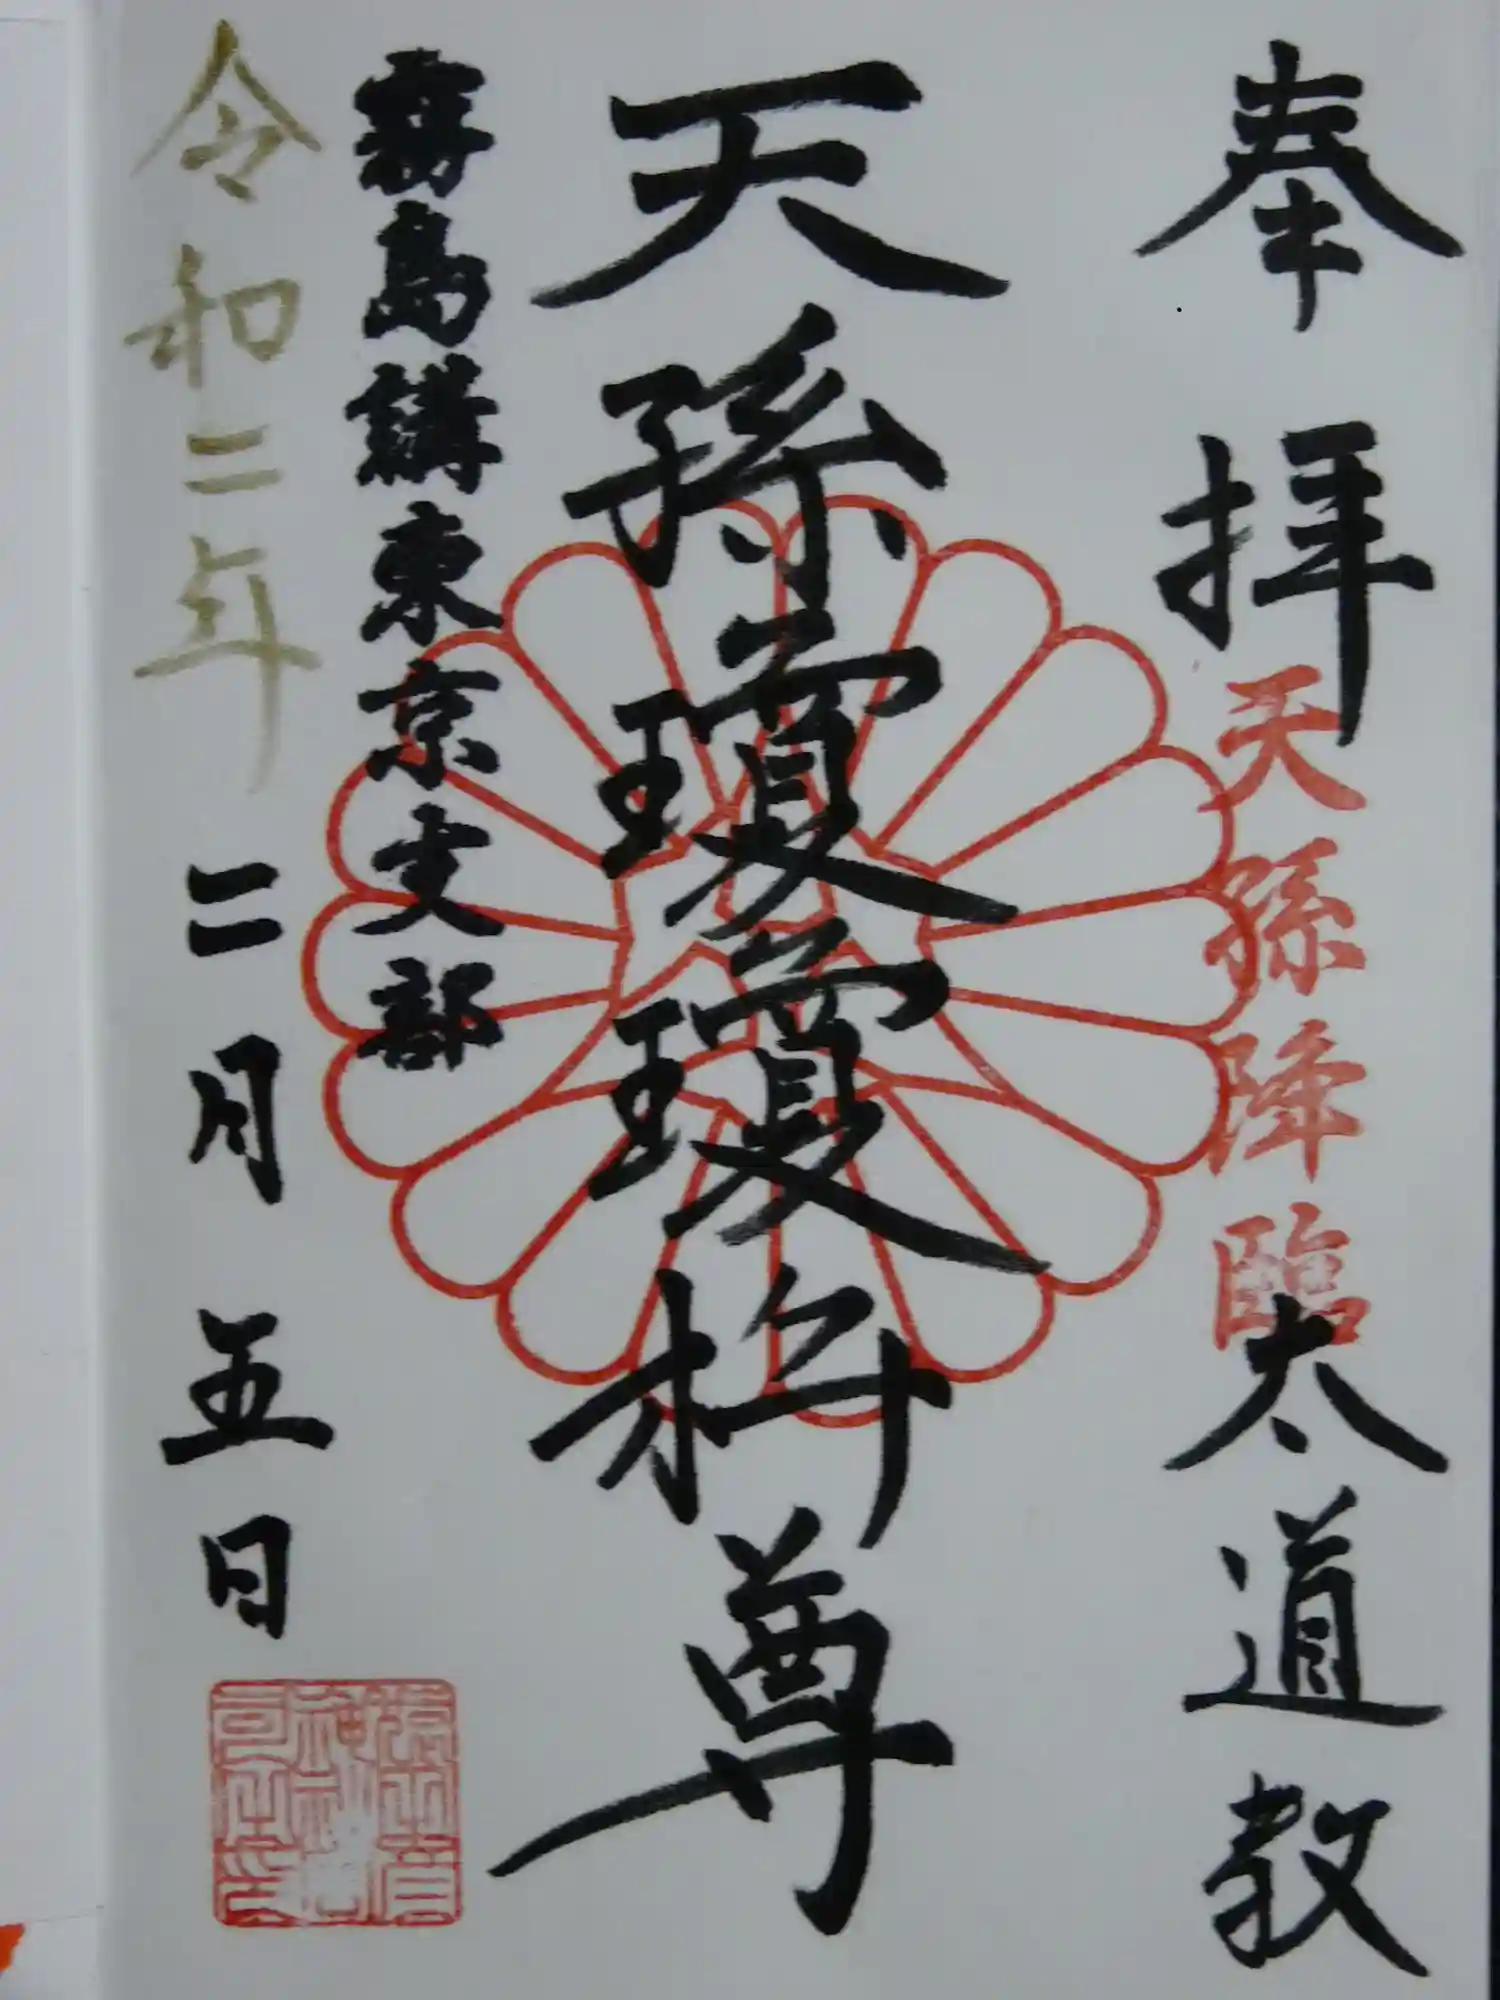 奉拝
天孫降臨
太道教
天孫瓊瓊杵尊
霧島講東京支部
令和二年
二月五日